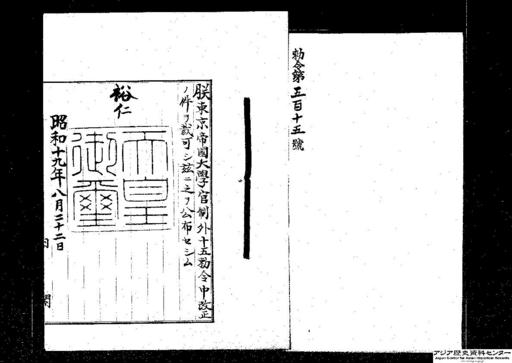 勅令第五百十五號
朕東京帝國大學官制外十五勅令中改正
ノ件ヲ裁可シ茲ニ之ヲ公布セシム
裕仁
天皇
御璽
昭和十九年八月二十二日
内閣
アジア歴史資料センター
Japan Center for Asian Historical Records